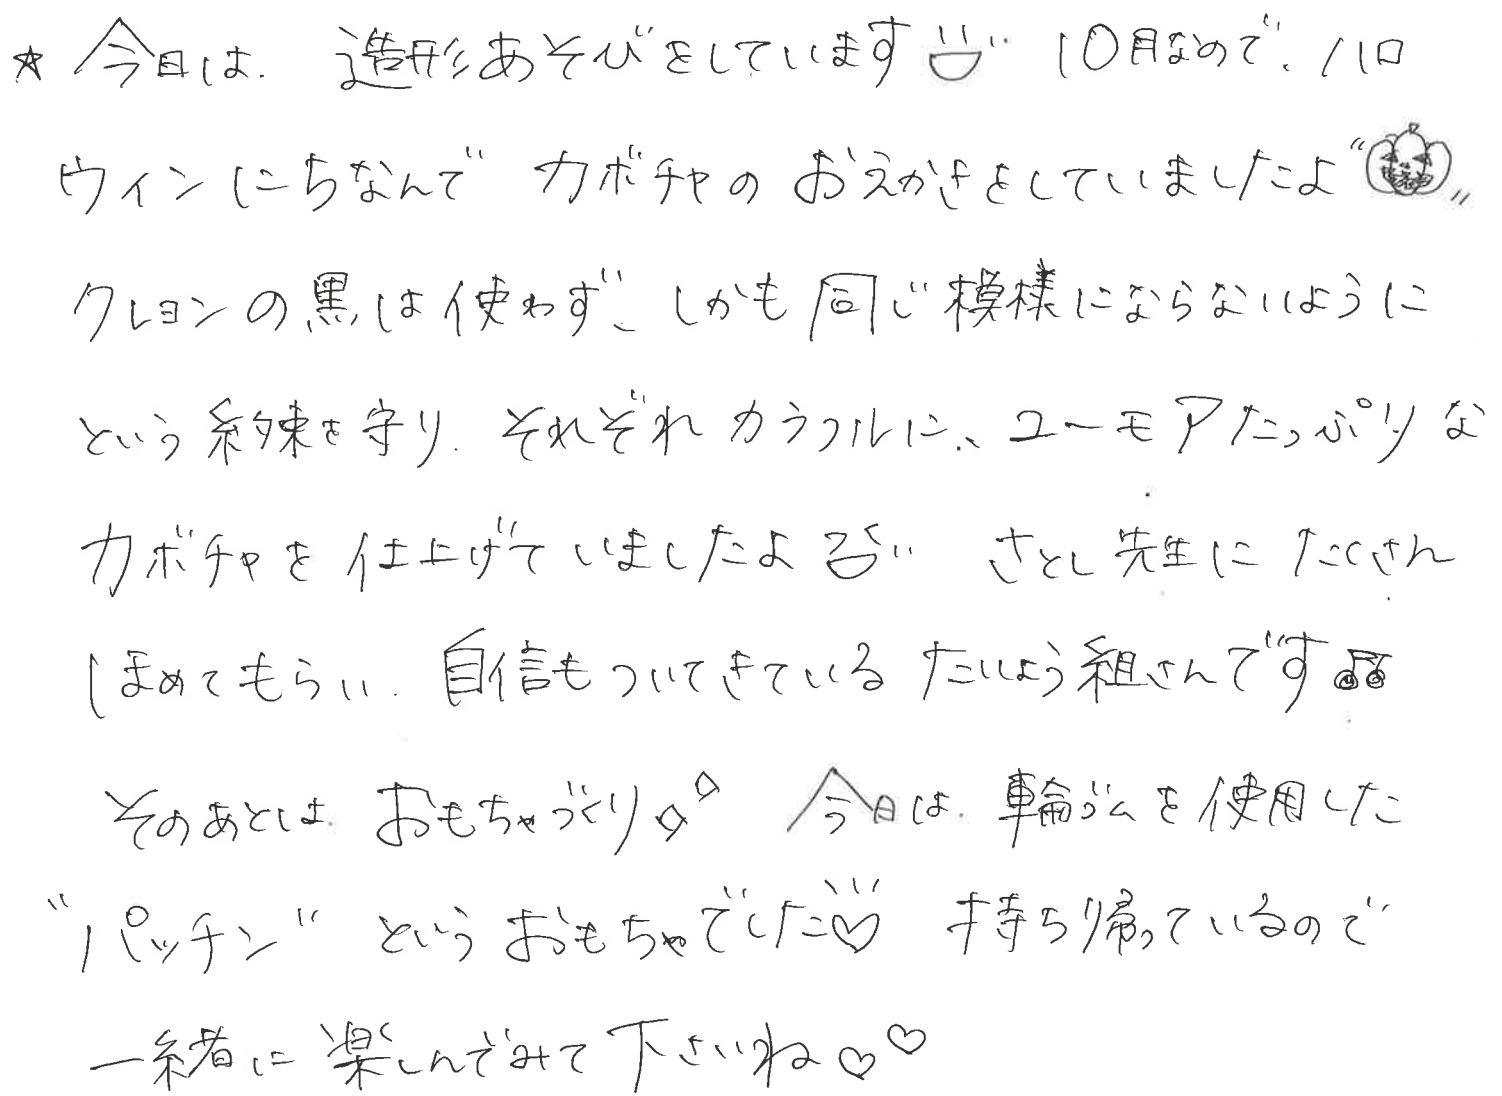 ☆今日は、造形あそびをしています 10月なので、ハロ
ウィンにちなんで カボチャの おえかきをしていましたよ
クレヨンの黒は使わず、しかも同じ模様にならないように
という約束を守り、それぞれカラフルに、ユーモアたっぷりな
カボチャを仕上げていましたよ さとし先生に たくさん
ほめてもらい、自信もついてきている たいよう組さんです♫
そのあとは、おもちゃづくり 今日は、輪ゴムを使用した
"パッチン" という おもちゃでした♡ 持ち帰っているので
一緒に 楽しんでみて下さいね♡♡